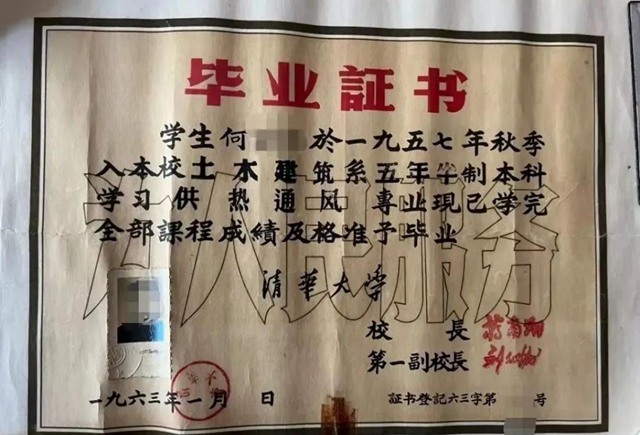 毕业証书
学生何 於一九五七年秋季
入本校土木建筑系五年半制本科
学习供热通风專业現已学完
全部課程成績及格准予毕业
为人民服务
清華大学
校長 蒋南翔
第一副校長 刘仙洲
一九六三年一月 日
証書登記六三字第 号